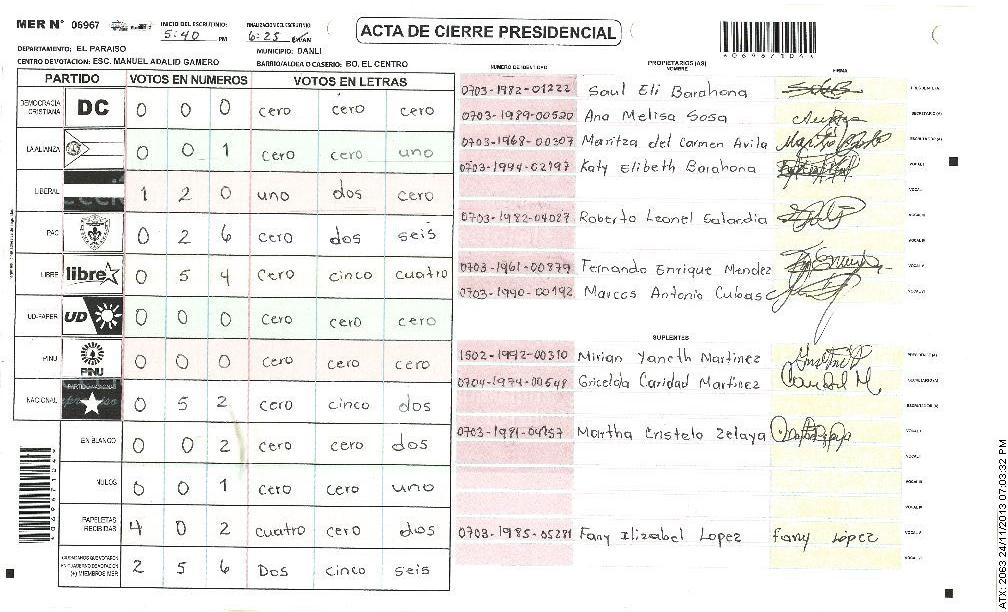 MER N° 06967 INICIO DEL ESCRUTINIO: 5:40 PM FINALIZACION DEL ESCRUTINIO: 6:25
ACTA DE CIERRE PRESIDENCIAL
*06967104*
DEPARTAMENTO: EL PARAISO MUNICIPIO: DANLI
CENTRO DE VOTACION: ESC. MANUEL ADALID GAMERO BARRIO/ALDEA O CASERIO: BO. EL CENTRO
PARTIDO VOTOS EN NUMEROS VOTOS EN LETRAS
DEMOCRACIA CRISTIANA DC 0 0 0 cero cero cero
LA ALIANZA 0 0 1 cero cero uno
LIBERAL 1 2 0 uno dos cero
PAC 0 2 6 cero dos seis
LIBRE libre 0 5 4 cero cinco cuatro
UD-FAPER UD 0 0 0 cero cero cero
PINU PINU 0 0 0 cero cero cero
NACIONAL 0 5 2 cero cinco dos
EN BLANCO 0 0 2 cero cero dos
NULOS 0 0 1 cero cero uno
PAPELETAS RECIBIDAS 4 0 2 cuatro cero dos
CIUDADANOS QUE VOTARON EN CUADERNO DE VOTACION (+) MIEMBROS MER 2 5 6 Dos cinco seis
NUMERO DE IDENTIDAD PROPIETARIOS (AS) NOMBRE FIRMA
0703-1982-01222 Saul Eli Barahona
0703-1989-00520 Ana Melisa Sosa
0703-1968-00307 Maritza del Carmen Avila
0703-1994-02197 Katy Elibeth Barahona
0703-1982-04027 Roberto Leonel Galandia
0703-1961-00879 Fernando Enrique Mendez
0703-1990-00192 Marcos Antonio Cubas
SUPLENTES
1502-1992-00310 Mirian Yaneth Martinez
0704-1974-00548 Gricelda Caridad Martinez
Martha Cristelo Zelaya
0703-1985-05281 Fany Ilizabel Lopez Fany López
ATX: 2063 24/11/2013 07:03:32 PM